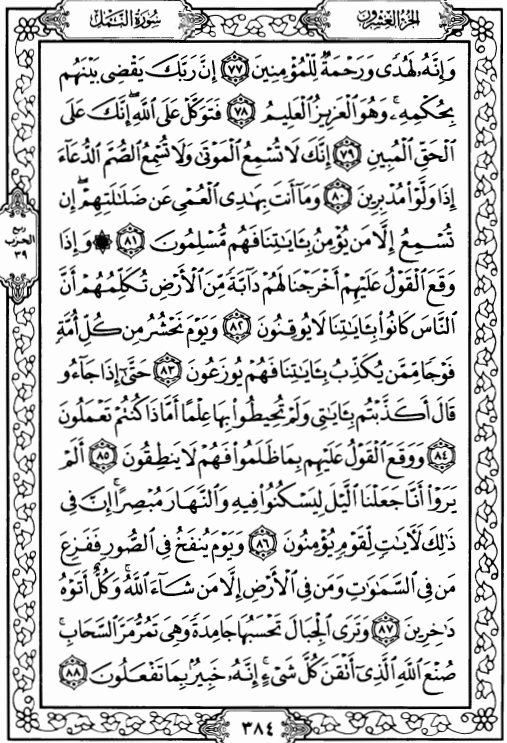 سُورَةُ النَّمْلِ
الجُزْءُ العِشْرُونَ
وَإِنَّهُۥ لَهُدًى وَرَحْمَةٌ لِّلْمُؤْمِنِينَ ٧٧ إِنَّ رَبَّكَ يَقْضِى بَيْنَهُم
بِحُكْمِهِۦۚ وَهُوَ ٱلْعَزِيزُ ٱلْعَلِيمُ ٧٨ فَتَوَكَّلْ عَلَى ٱللَّهِۖ إِنَّكَ عَلَى
ٱلْحَقِّ ٱلْمُبِينِ ٧٩ إِنَّكَ لَا تُسْمِعُ ٱلْمَوْتَىٰ وَلَا تُسْمِعُ ٱلصُّمَّ ٱلدُّعَآءَ
إِذَا وَلَّوْا۟ مُدْبِرِينَ ٨٠ وَمَآ أَنتَ بِهَـٰدِى ٱلْعُمْىِ عَن ضَلَـٰلَتِهِمْۖ إِن
تُسْمِعُ إِلَّا مَن يُؤْمِنُ بِـَٔايَـٰتِنَا فَهُم مُّسْلِمُونَ ٨١ ۞ وَإِذَا
وَقَعَ ٱلْقَوْلُ عَلَيْهِمْ أَخْرَجْنَا لَهُمْ دَآبَّةً مِّنَ ٱلْأَرْضِ تُكَلِّمُهُمْ أَنَّ
ٱلنَّاسَ كَانُوا۟ بِـَٔايَـٰتِنَا لَا يُوقِنُونَ ٨٢ وَيَوْمَ نَحْشُرُ مِن كُلِّ أُمَّةٍ
فَوْجًا مِّمَّن يُكَذِّبُ بِـَٔايَـٰتِنَا فَهُمْ يُوزَعُونَ ٨٣ حَتَّىٰٓ إِذَا جَآءُو
قَالَ أَكَذَّبْتُم بِـَٔايَـٰتِى وَلَمْ تُحِيطُوا۟ بِهَا عِلْمًا أَمَّاذَا كُنتُمْ تَعْمَلُونَ
٨٤ وَوَقَعَ ٱلْقَوْلُ عَلَيْهِم بِمَا ظَلَمُوا۟ فَهُمْ لَا يَنطِقُونَ ٨٥ أَلَمْ
يَرَوْا۟ أَنَّا جَعَلْنَا ٱلَّيْلَ لِيَسْكُنُوا۟ فِيهِ وَٱلنَّهَارَ مُبْصِرًاۚ إِنَّ فِى
ذَٰلِكَ لَـَٔايَـٰتٍ لِّقَوْمٍ يُؤْمِنُونَ ٨٦ وَيَوْمَ يُنفَخُ فِى ٱلصُّورِ فَفَزِعَ
مَن فِى ٱلسَّمَـٰوَٰتِ وَمَن فِى ٱلْأَرْضِ إِلَّا مَن شَآءَ ٱللَّهُۚ وَكُلٌّ أَتَوْهُ
دَٰخِرِينَ ٨٧ وَتَرَى ٱلْجِبَالَ تَحْسَبُهَا جَامِدَةً وَهِىَ تَمُرُّ مَرَّ ٱلسَّحَابِۚ
صُنْعَ ٱللَّهِ ٱلَّذِىٓ أَتْقَنَ كُلَّ شَىْءٍۚ إِنَّهُۥ خَبِيرٌۢ بِمَا تَفْعَلُونَ ٨٨
ربع
الحزب
٣٩
٣٨٤